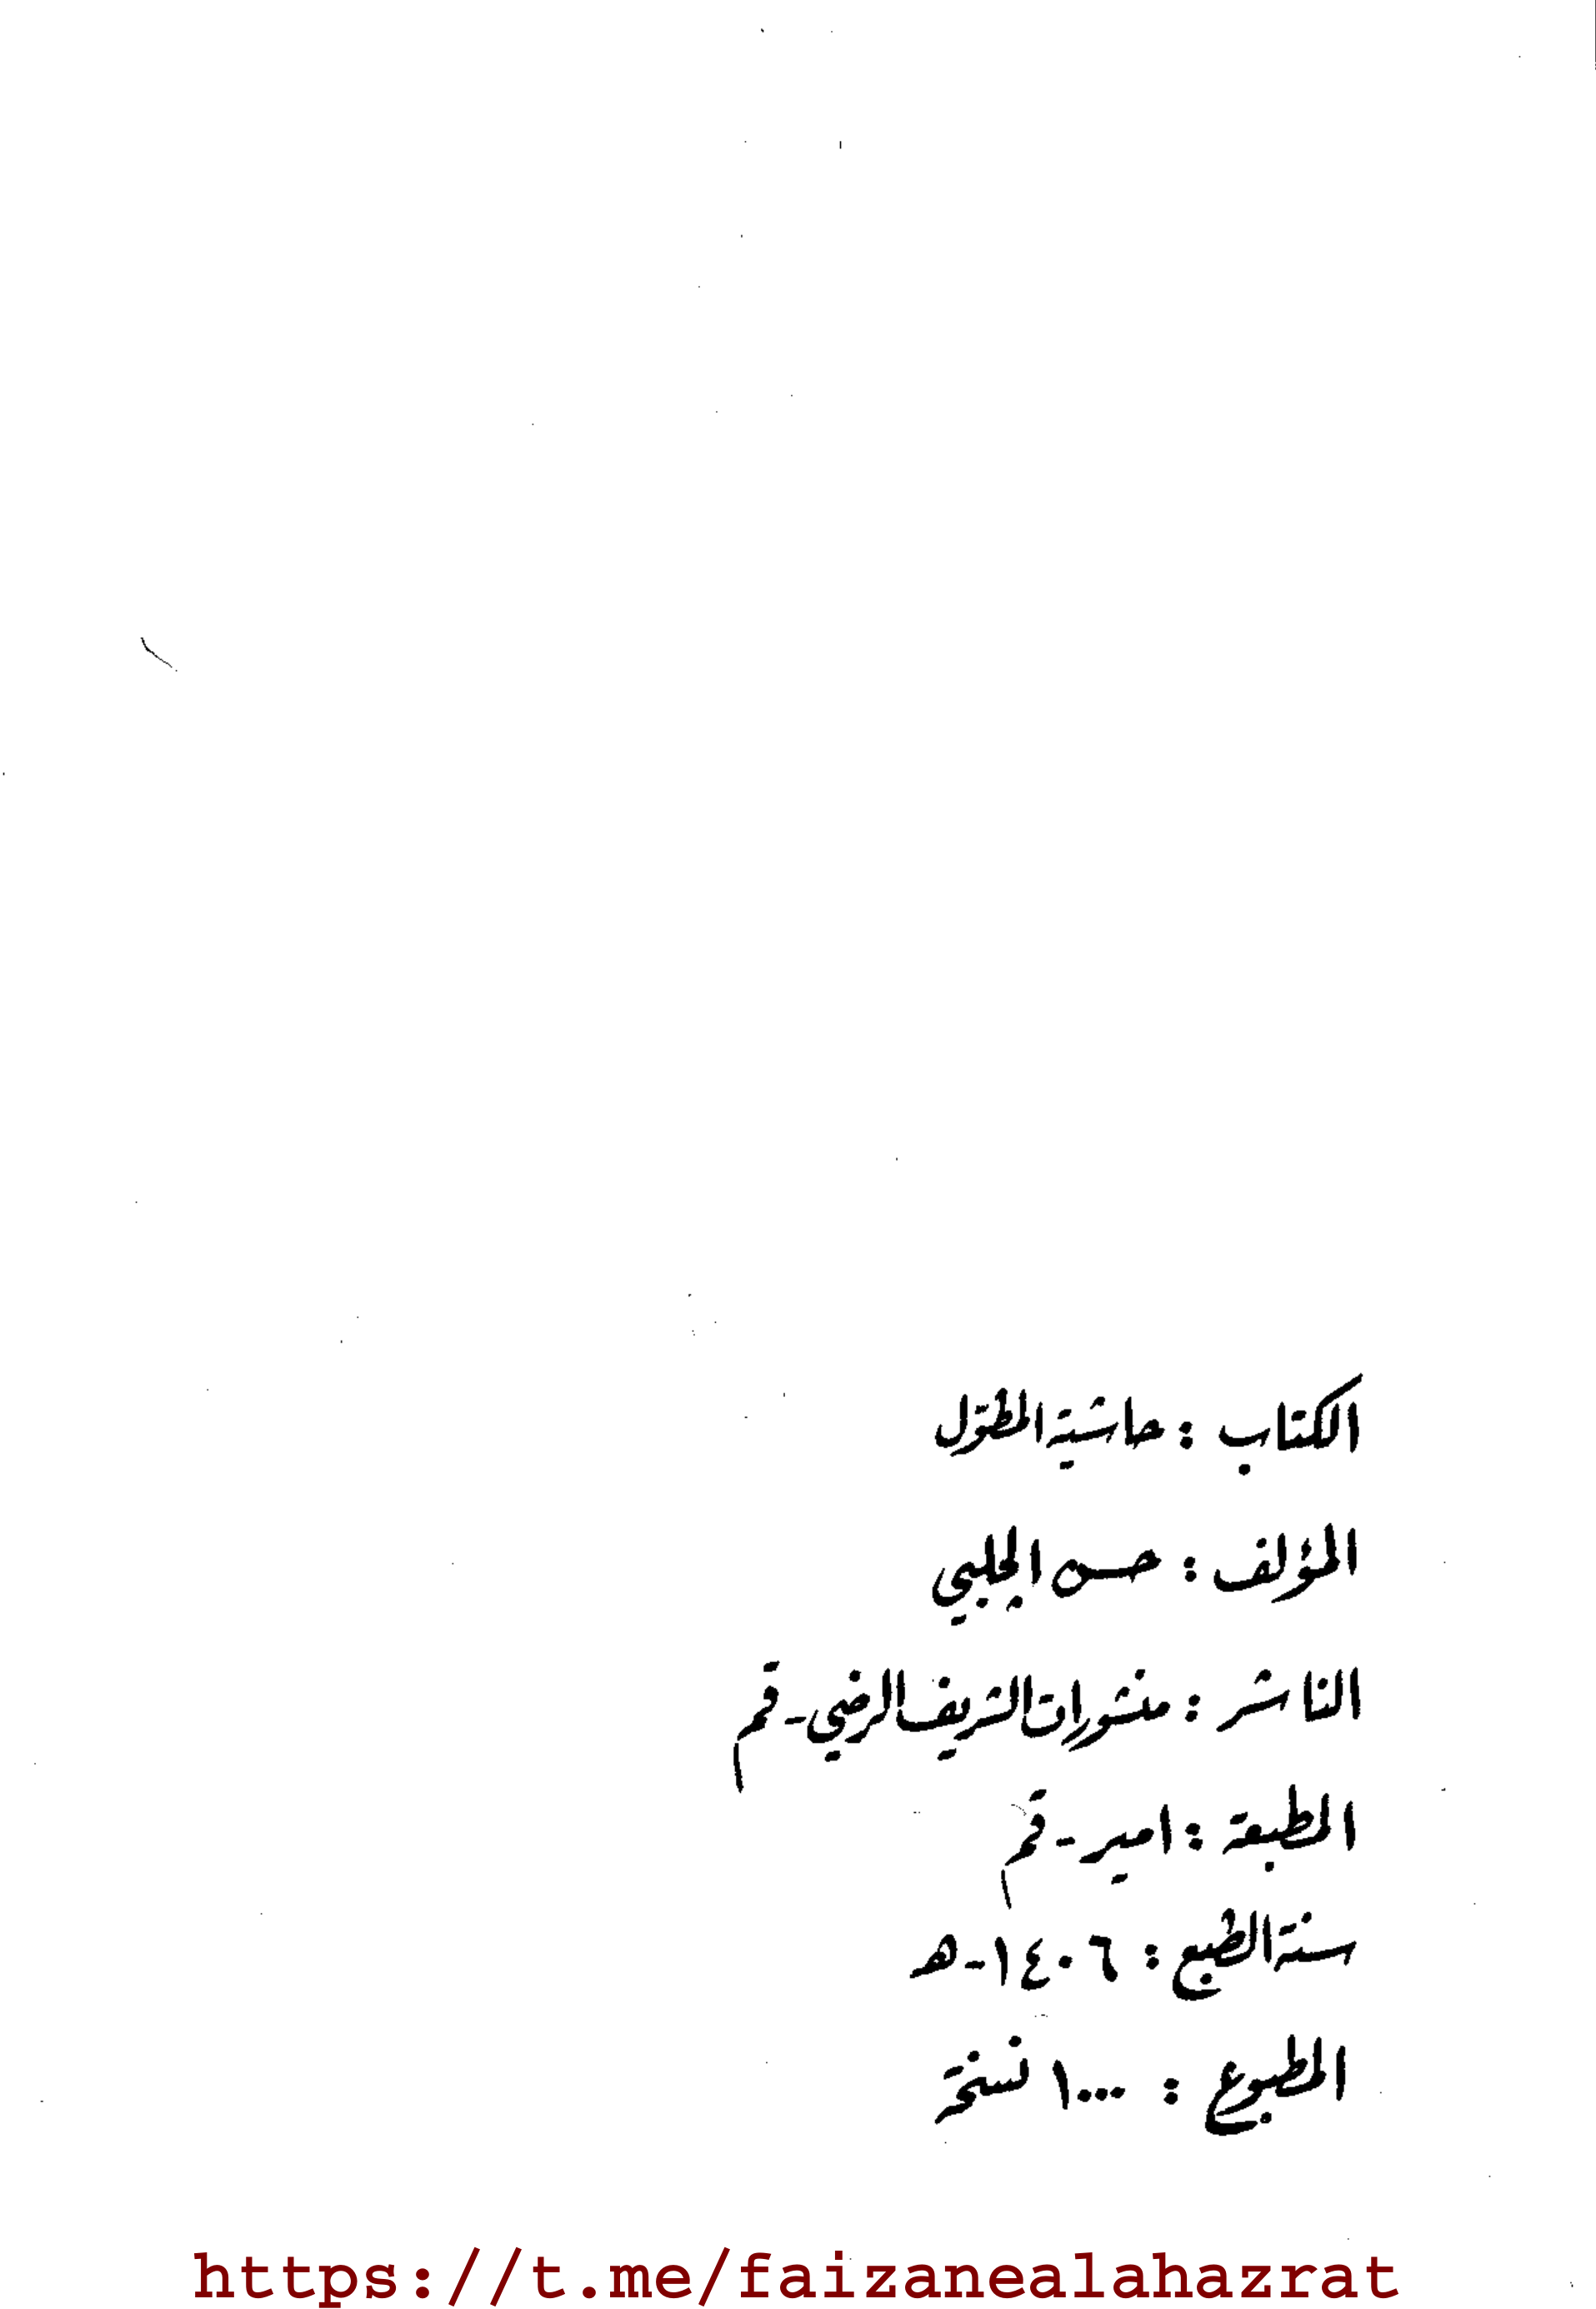 الكتاب : حاشية المطوّل
المؤلف : حسن الجلبي
الناشر : منشورات الشريف الرضي - قم
المطبعة : امير - قم
سنة الطبع : ١٤٠٦ - ه
المطبوع : ١٠٠٠ نسخة
https://t.me/faizanealahazrat